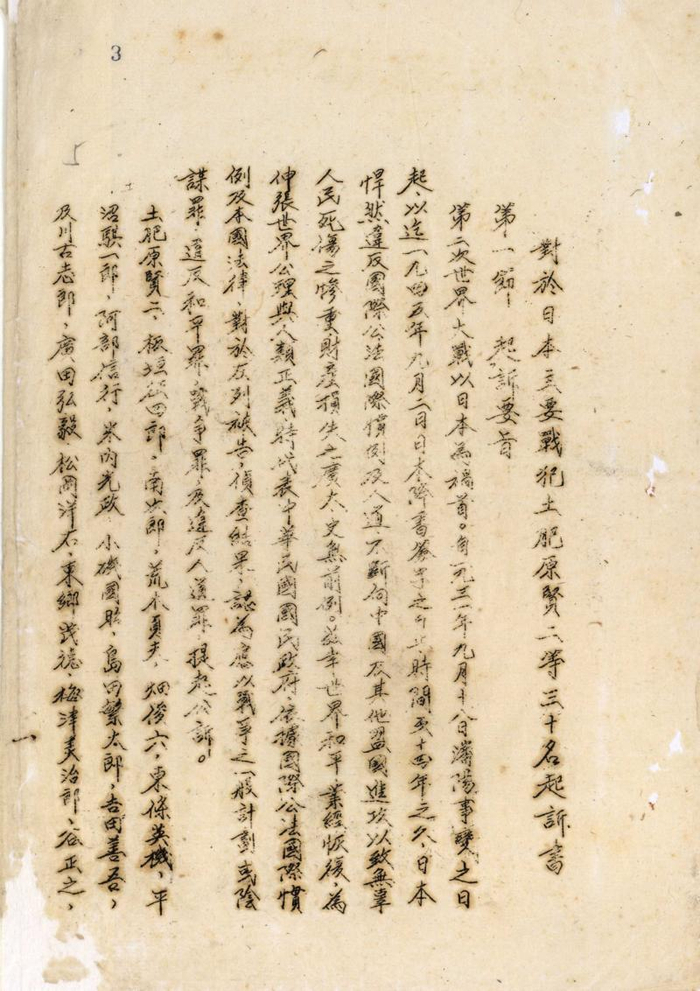 3
對於日本主要戰犯土肥原賢二等三十名起訴書
第一節 起訴要旨
第二次世界大戰以日本為禍首。自一九三一年九月十八日瀋陽事變之日
起,以迄一九四五年九月二日日本降書簽字之日止,時間至十四年之久,日本
悍然違反國際公法國際慣例及人道,不斷向中國及其他盟國進攻以致無辜
人民死傷之慘重,財產損失之廣大,史無前例。茲幸世界和平業經恢復,為
伸張世界公理與人類正義,特代表中華民國國民政府,依據國際公法國際慣
例及本國法律,對於左列被告,偵查結果,認為應以戰爭之一般計劃或陰
謀罪,違反和平罪,戰爭罪,及違反人道罪,提起公訴。
土肥原賢二,板垣征四郎,南次郎,荒木貞夫,畑俊六,東條英機,平
沼騏一郎,阿部信行,米內光政,小磯國昭,島田繁太郎,吉田善吾,
及川古志郎,廣田弘毅,松岡洋右,東鄉茂德,梅津美治郎,谷正之,
一